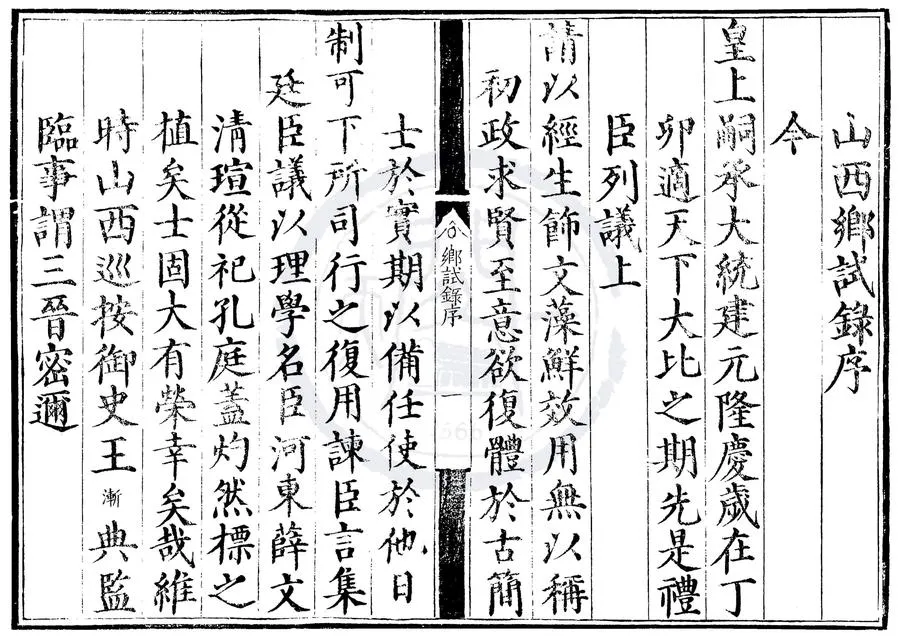 山西鄉試錄序
今
皇上嗣承大統建元隆慶歲在丁
卯適天下大比之期先是禮
臣列議上
請以經生飾文藻鮮效用無以稱
初政求賢至意欲復體於古簡
鄉試錄序
一
士於實期以備任使於他日
制可下所司行之復用諫臣言集
廷臣議以理學名臣河東薛文
清瑄從祀孔庭蓋灼然標之
植矣士固大有榮幸矣哉維
時山西巡按御史王漸典監
臨事謂三晉密邇